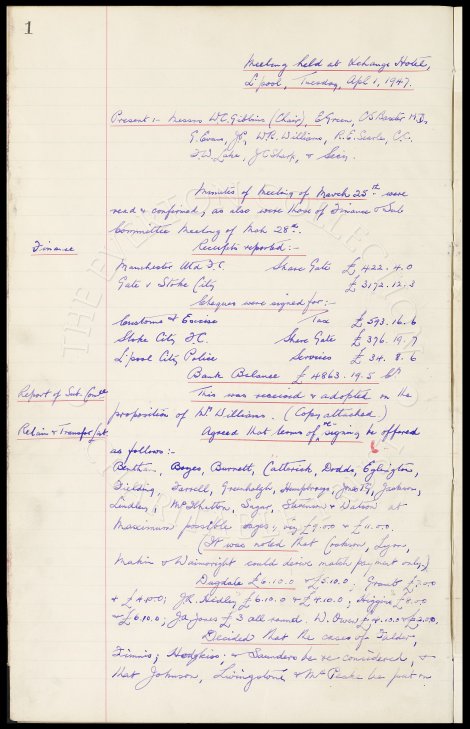 1
Meeting held at Xchange Hotel,
L'pool, Tuesday, Apl 1, 1947.
Present :- Messrs W.C. Gibbins (Chair), E Green, C.S. Baxter M.B.,
G. Evans, J.P., W.R. Williams, R.E. Searle, C.C.
F.W. Lake, J.C. Sharp, & Secy.
Minutes of Meeting of March 25th were
read & confirmed, as also were those of Finance & Sub
Committee Meeting of Mch 28th.
Finance
Receipts reported :-
Manchester Utd. F.C. Share Gate £422.4.0
Gate v Stoke City £3172.12.3
Cheques were signed for :-
Customs & Excise Tax £593.16.6
Stoke City F.C. Share Gate £376.19.7
L'pool City Police Services £34.8.6
Bank Balance £4863.19.5 Cr
Report of Sub. Comtee
This was received & adopted on the
proposition of Mr Williams. (Copy attached.)
Retain & Transfer list
Agreed that terms of re-signing be offered
as follows :-
Bentham, Boyes, Burnett, Catterick, Dodds, Eglington,
Fielding, Farrell, Greenhalgh, Humphreys, Jones T.G., Jackson,
Lindley, McIlhatton, Sagar, Stevenson & Watson at
Maximum possible wages, £9.0.0 & £11.0.0.
(It was noted that Cookson, Lyon,
Makin & Wainwright could derive match payment only.)
Dugdale £6.10.0 & £5.10.0; Grant £5.0.0
& £4.0.0; J.R. Hedley £6.10.0 & £4.10.0; Higgins £7.0.0
& £6.10.0; J.A. Jones £3 all round. W. Owen £4.10.0 & £2.0.0.
Decided that the cases of Falder,
Finnis, Hodgkiss, & Saunders be re considered, &
that Johnson, Livingstone & McPeake be put on